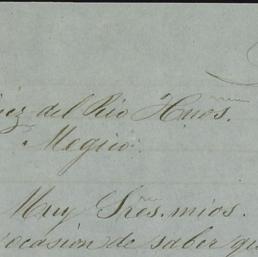 ez del Rio Hnos.
Megico.
Muy Sres. mios.
ocasion de saber qu